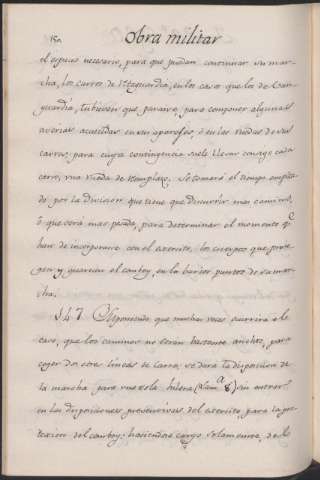 150 Obra militar
el espacio necesario, para que puedan continuar su mar-
cha, los carros de retaguardia, en los casos que los de Van-
guardia, tubiesen que pararse, para componer algunas
averias acaecidas en sus aparejos, ó en las ruedas de sus
carros, para cuya contingencia suele llevar consigo cada
carro, una rueda de remplazo. Se tomará el tiempo emplea-
do por la division que tiene que discurrir mas camino,
ó que será mas pesada, para determinar el momento q.e
han de incorporarse con el exercito, los cuerpos que prote-
gen y guarecen el comboy, en los varios puntos de su mar-
cha.
§47. Suponiendo que muchas veces ocurrirá el
caso, que los caminos no seran bastante anchos, para
coger dos ó tres lineas de carros; se dará la disposicion de
la marcha para una sola hilera (Lam.a 8) sin entrar
en las disposiciones preservativas del exercito, para la pro-
texcion del comboy: haciendose cargo solamente, de el